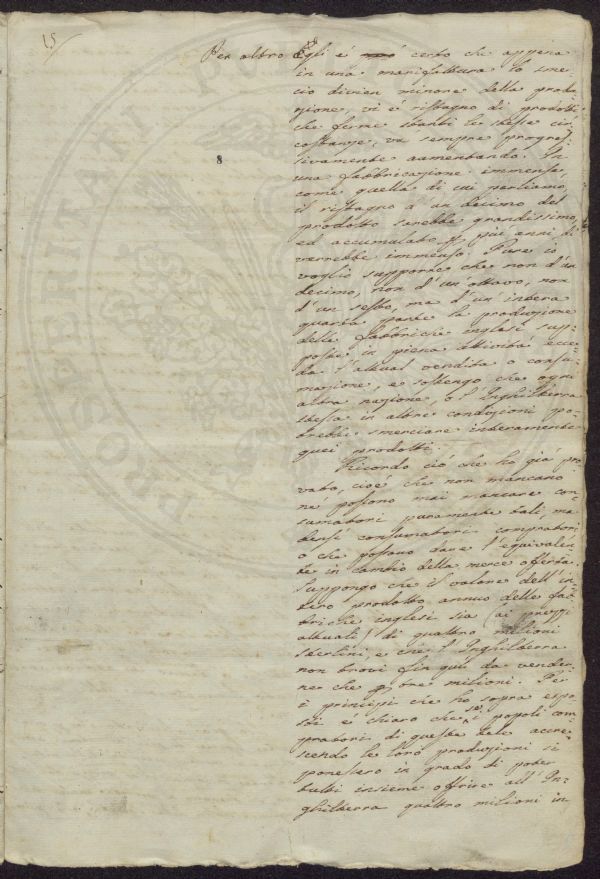 15
Per altro Egli è certo che appena
in una manifattura lo smer-
cio divien minore della produ-
zione, vi è ristagno di prodotti
che fermi stanti le stesse cir-
costanze, va sempre progres-
sivamente aumentando. In
una fabbricazione immensa,
8
come quella di cui parliamo,
il ristagno d'un decimo del
prodotto sarebbe grandissimo,
ed accumulato più anni di
verrebbe immenso. Pure io
voglio supporre che non d'un
decimo, non d'un ottavo, non
d'un sesto, ma d'un'intera
quarta parte la produzione
delle fabbriche inglesi sup-
poste in piena attività ecce-
da l'attual vendita o consu-
mazione, e sostengo che ogni
altra nazione, o l'Inghilterra
stessa in altre condizioni po-
trebbe smerciare interamente
quei prodotti.
Ricordo ciò che ho già pro
vato, cioè che non mancano
né possono mai mancare con-
sumatori puramente tali, ma
bensì consumatori compratori
o che possano dare l'equivalen-
te in cambio della merce offerta.
Suppongo che il valore dell'in-
tero prodotto annuo delle fab-
briche inglesi sia (ai prezzi
attuali) di quattro milioni
sterlini, e che l'Inghilterra
non trovi fin qui da vender-
ne che tre milioni. Per
i principi che ho sopra espo
sti è chiaro che se i popoli com-
pratori di queste tele accre-
scendo le loro produzioni si
ponessero in grado di poter
tutti insieme offrire all'In-
ghilterra quattro milioni in